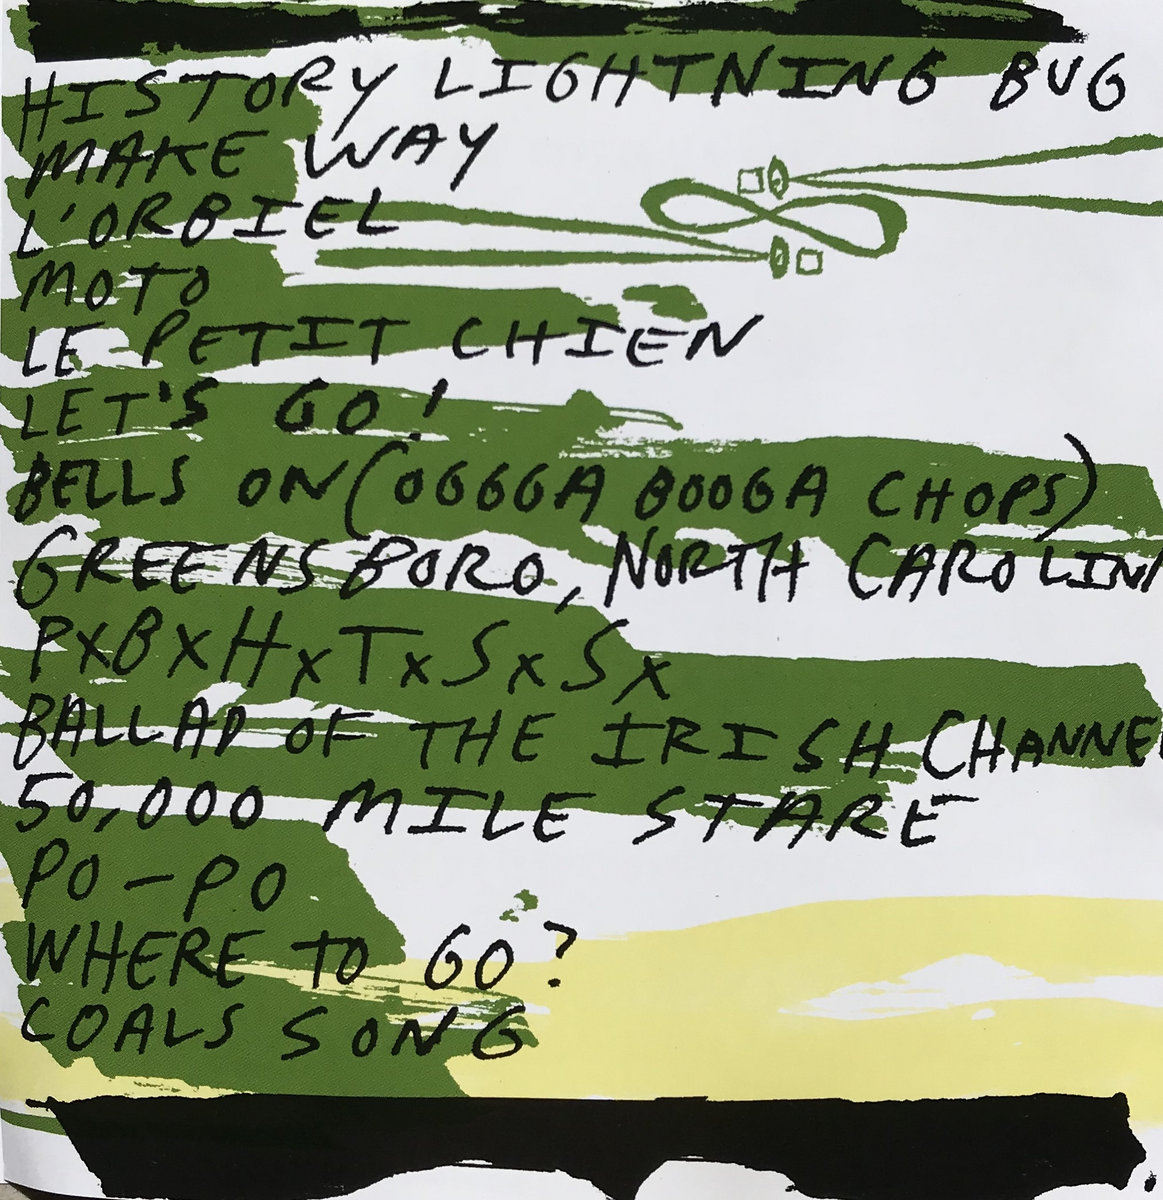 HISTORY LIGHTNING BUG
MAKE WAY
L'ORBIEL
MOTO
LE PETIT CHIEN
LET'S GO!
BELLS ON (OGGGA BOOGA CHOPS)
GREENSBORO, NORTH CAROLINA
PXBXHXTXSXSX
BALLAD OF THE IRISH CHANNEL
50,000 MILE STARE
PO-PO
WHERE TO GO?
COALS SONG